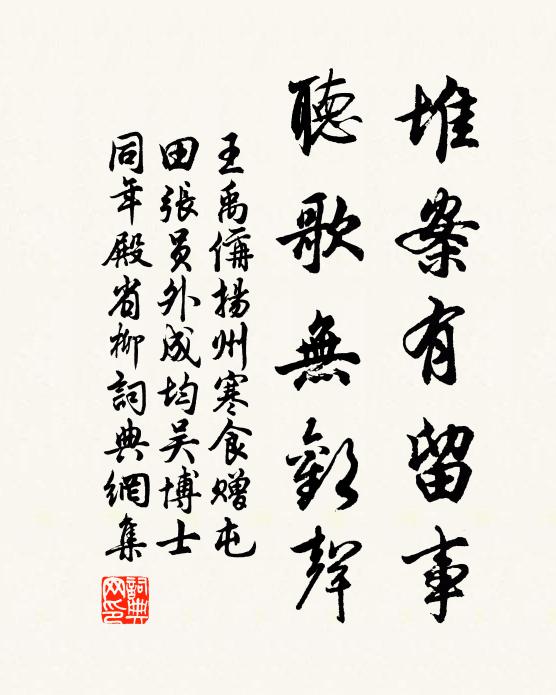 堆案有留事
聽歌無歡聲
王禹偁揚州寒食贈屯
田張員外成均吴博士
同年殿省柳詞典網集
詞典網印